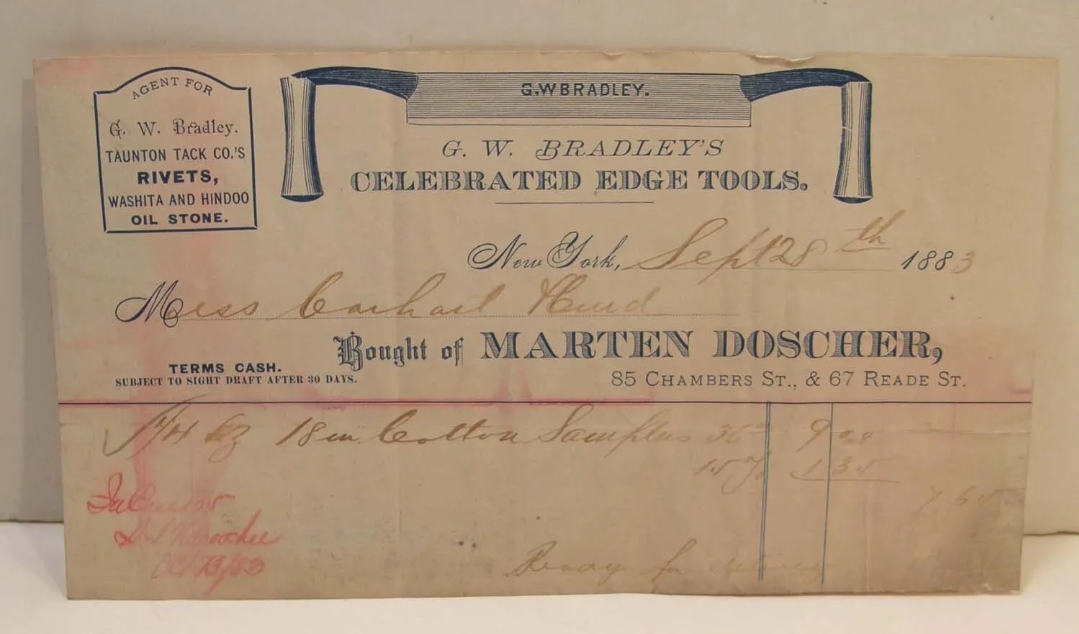 AGENT FOR
G. W. Bradley.
TAUNTON TACK CO.'S
RIVETS,
WASHITA AND HINDOO
OIL STONE.
G.W BRADLEY.
G. W. BRADLEY'S
CELEBRATED EDGE TOOLS.
New York, Sept 28th 1883
Mess
Bought of MARTEN DOSCHER,
TERMS CASH.
SUBJECT TO SIGHT DRAFT AFTER 30 DAYS.
85 CHAMBERS ST., & 67 READE ST.
1/4 18 in Cotton 36 9 00
15 % 1 35
7 65